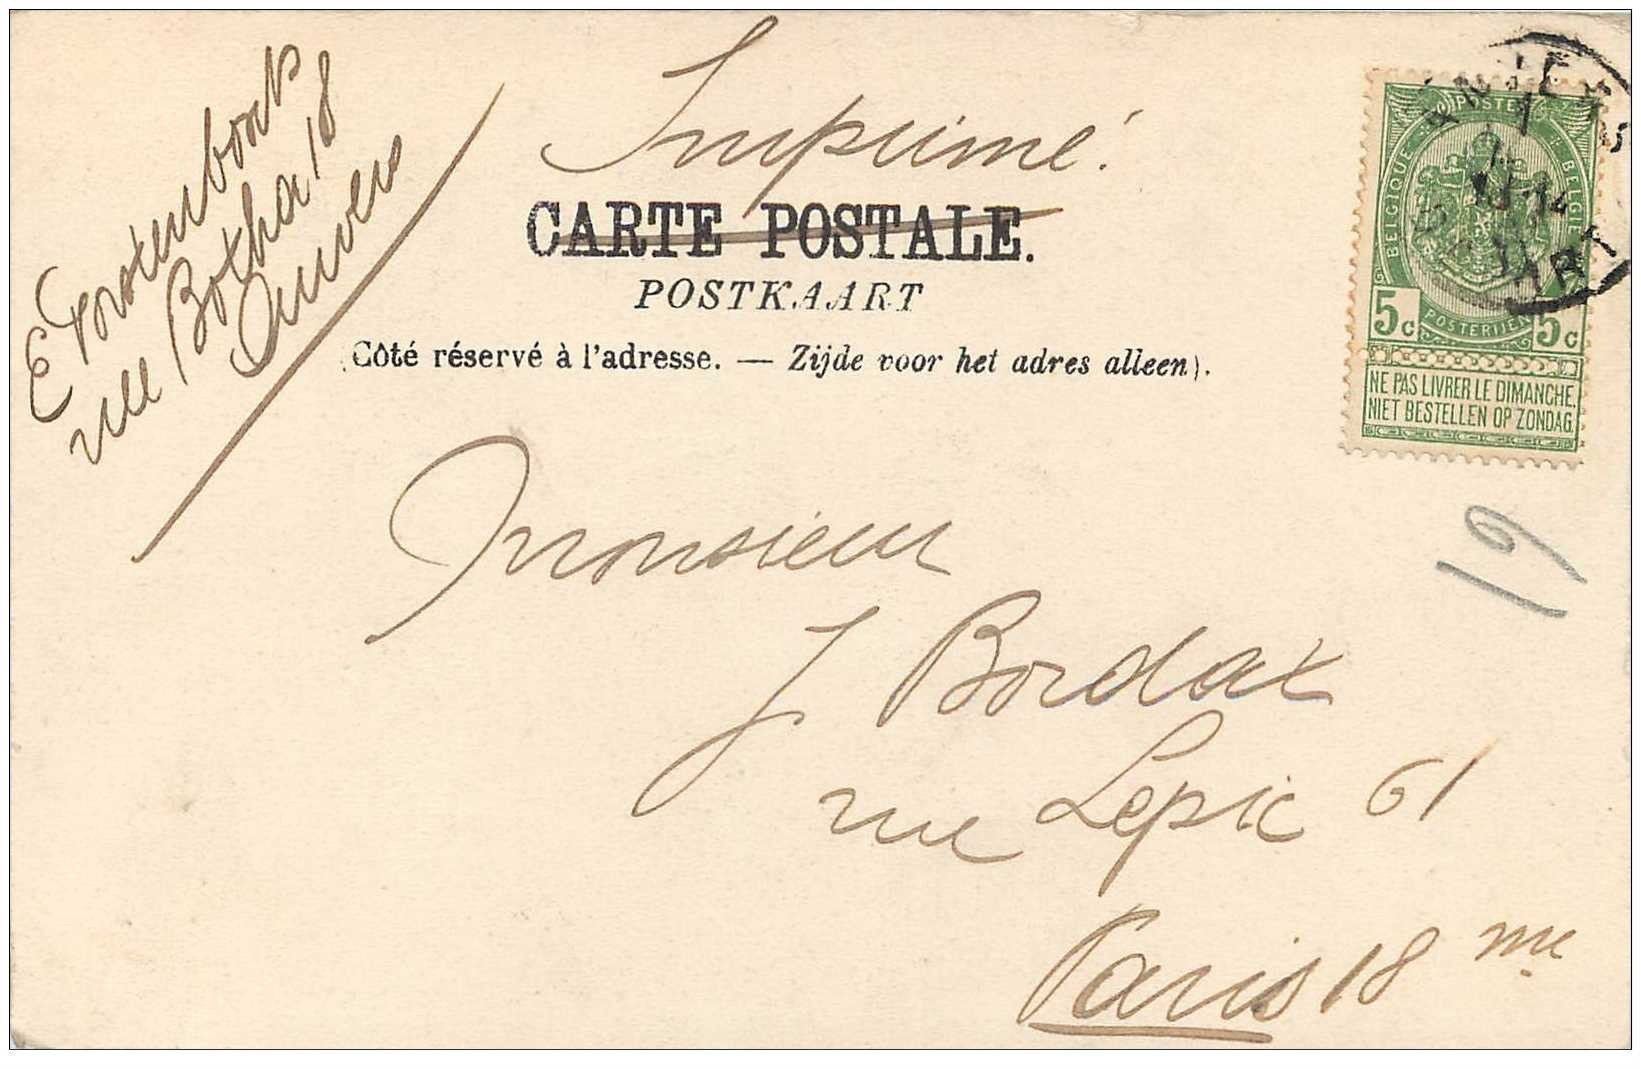 E Vorstenbosch
rue Botha 18
Anvers
Imprimé.
CARTE POSTALE.
POSTKAART
(Côté réservé à l'adresse. — Zijde voor het adres alleen).
POSTES
BELGIQUE
BELGIË
5c POSTERIJEN 5c
NE PAS LIVRER LE DIMANCHE.
NIET BESTELLEN OP ZONDAG.
19
Monsieur
J Bordat
rue Lepic 61
Paris 18 me